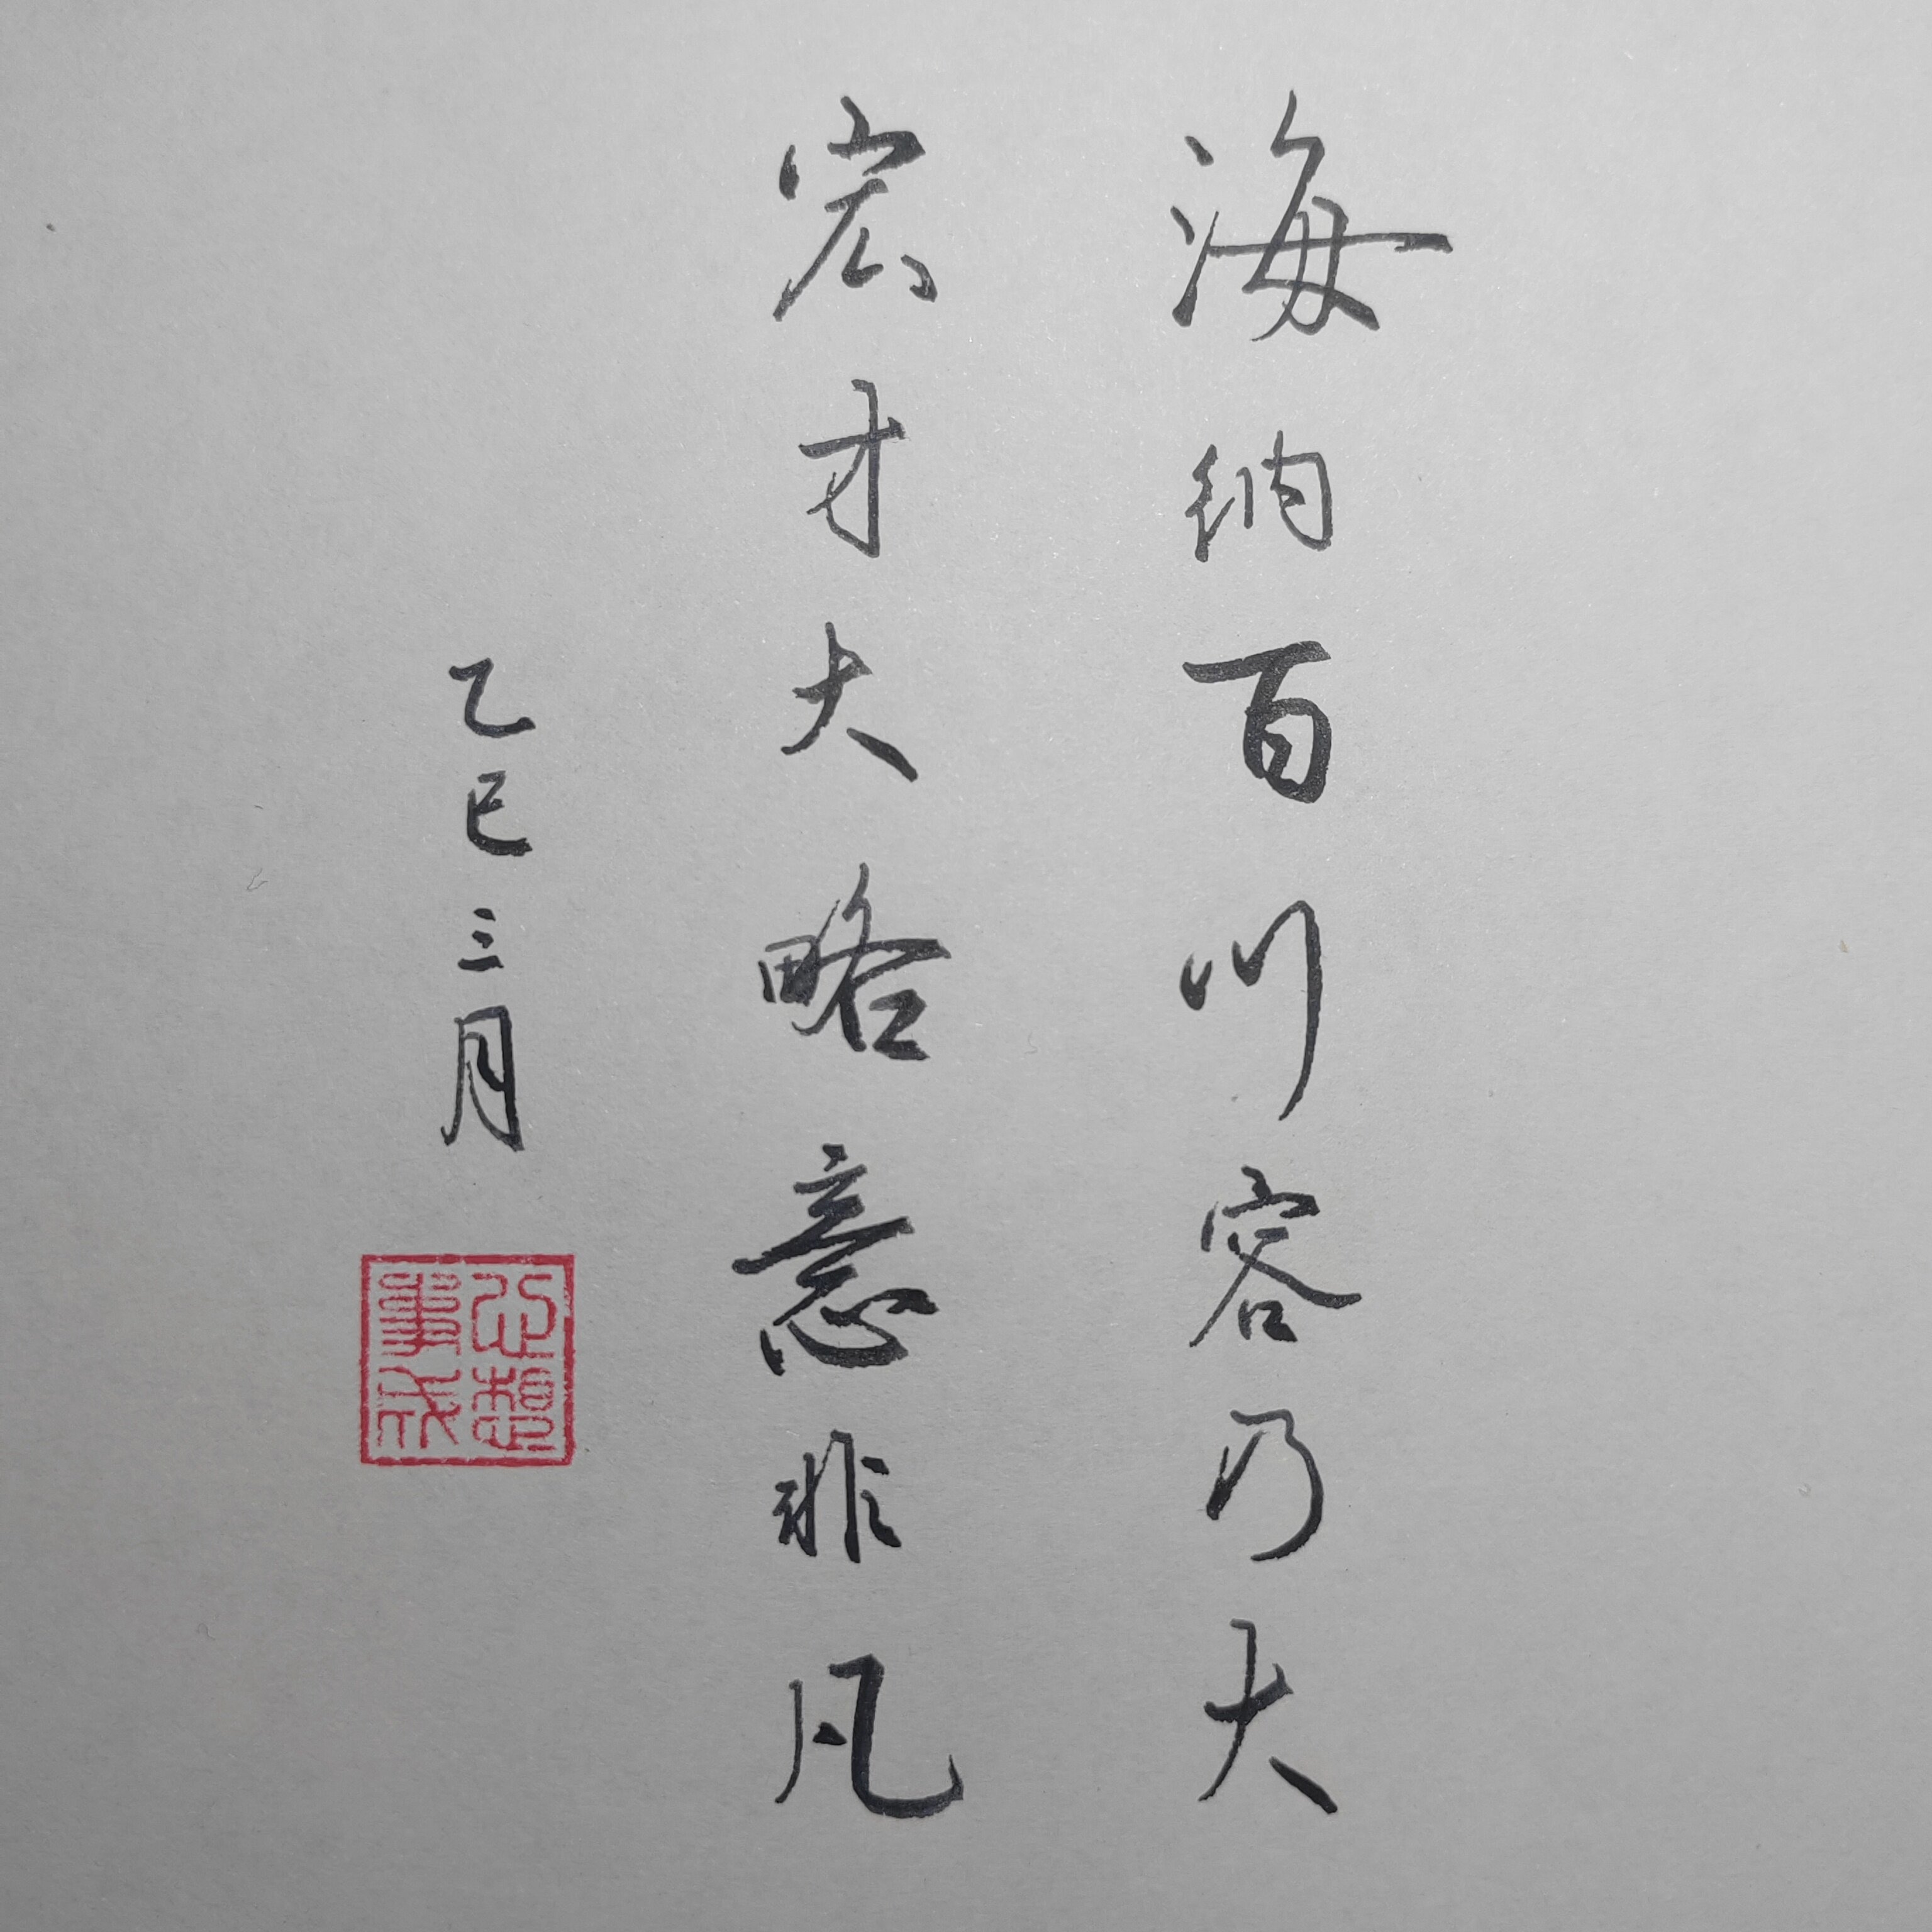 海纳百川容乃大
宏才大略意非凡
乙巳三月
心想事成